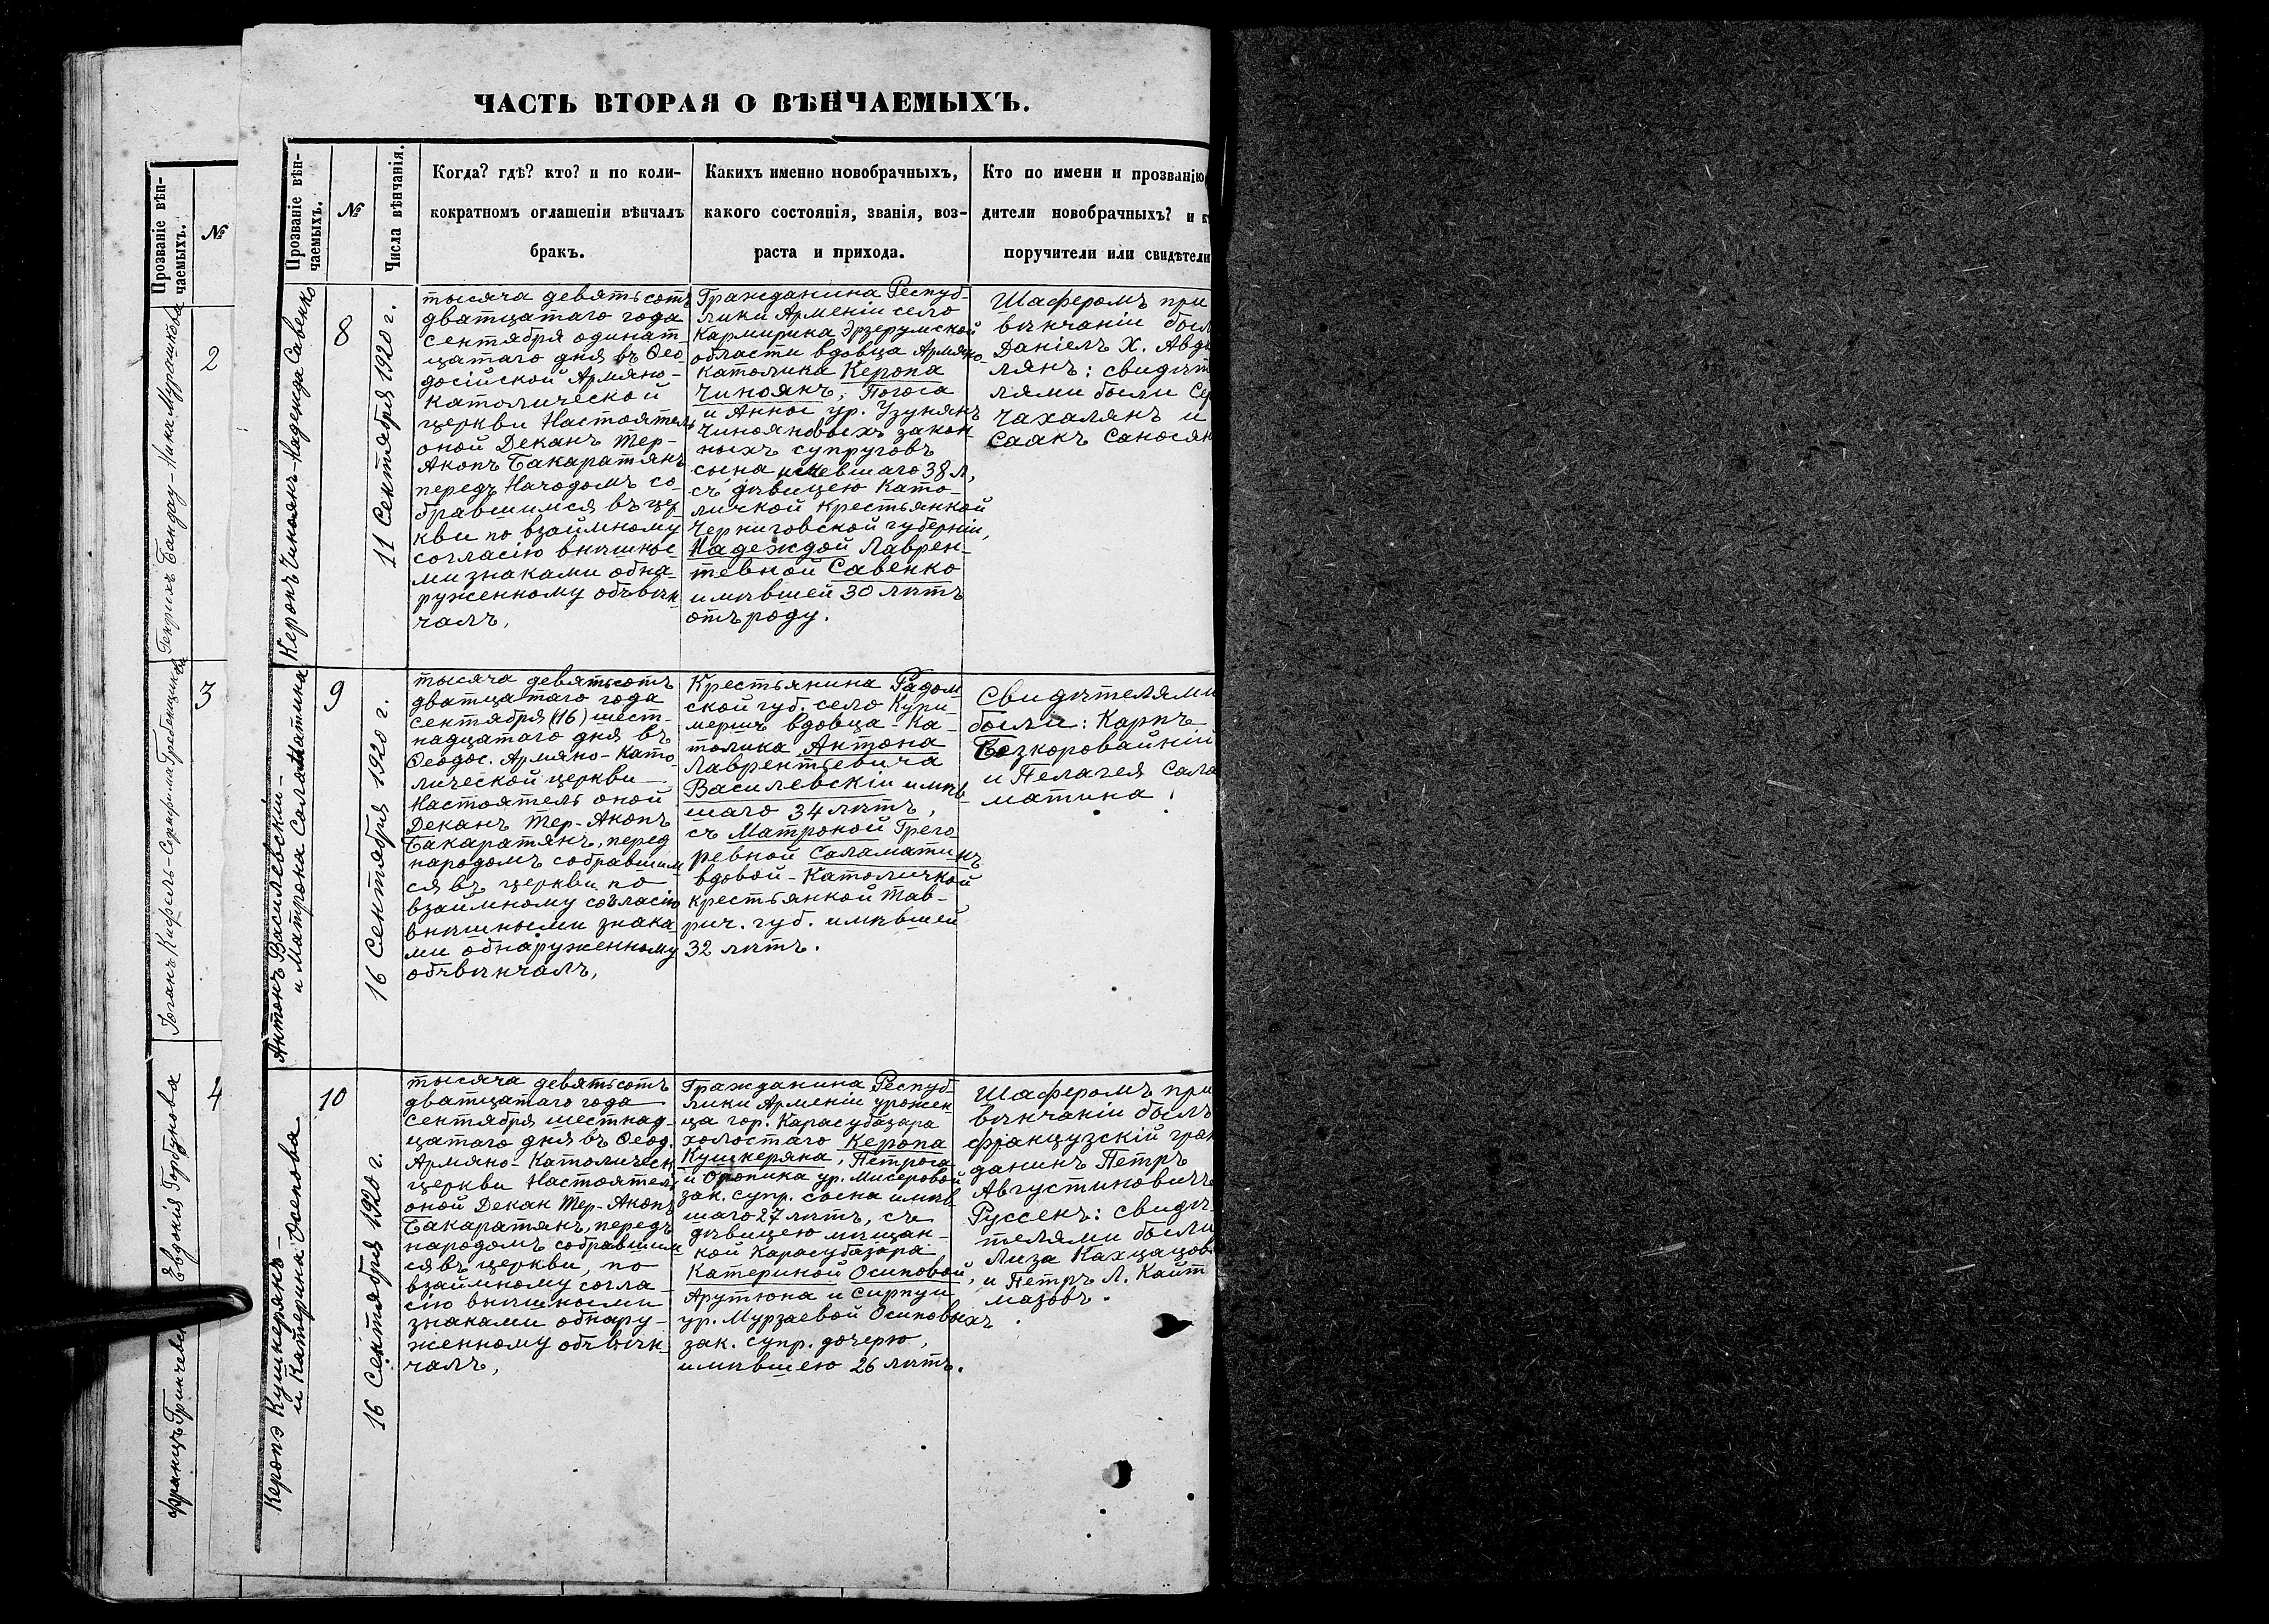 ЧАСТЬ ВТОРАЯ О ВѢНЧАЕМЫХЪ.
Прозваніе вѣн-
чаемыхъ.
№
Числа вѣнчанія.
Когда? гдѣ? кто? и по коли-
кократномъ оглашеніи вѣнчалъ
бракъ.
Какихъ именно новобрачныхъ,
какого состоянія, званія, воз-
раста и прихода.
Кто по имени и прозванію
дители новобрачныхъ? и к
поручители или свидѣтели
Керопъ Чиноянъ - Надежда Савенко
8
11 Сентября 1920 г.
тысяча девятьсотъ
дватцатаго года
сентября одинат-
цатаго дня въ Ѳео-
досійской Армяно-
католической
церкви Настоятель
оной Деканъ Тер-
Акопъ Бакаратянъ
передъ Народомъ со-
бравшимся въ цер
кви по взаимному
согласію внѣшны-
ми знаками обна-
руженному объвѣн-
чалъ,
Гражданина Респуб-
лики Арменіи село
Кармирика Эрзерумской
области вдовца Армяно-
католика Керопа
Чиноянъ, Погоса
и Анны ур. Узунянъ
Чинояновыхъ закон-
ныхъ супруговъ
сына имевшаго 38 л,
съ дѣвицею Като-
личкой Крестьянкой
Черниговской губерніи,
Надеждой Лаврен-
тевной Савенко
имѣвшей 30 лѣтъ
отъ роду.
Шаферомъ при
вѣнчаніи был
Даніелъ Х. Авд
лянъ: свидѣт
лями были Се
Чахалянъ и
Саакъ Саносян
Антонъ Василевскій -
и Матрона Саламатина
9
16 Сентября 1920 г.
тысяча девятьсотъ
дватцатаго года
сентября (16) шест-
надцатаго дня въ
Ѳеодос. Армяно-Като-
лической церкви
Настоятель оной
Деканъ Тер-Акопъ
Бакаратянъ, перед
народомъ собравшим
ся въ церкви по
взаимному согласію
внѣшными знака
ми обнаруженному
объвѣнчалъ,
Крестьянина Радом
ской губ. село Купи-
мерич вдовца - Ка-
толика Антона
Лаврентьевича
Василевскіи имѣв
шаго 34 лѣтъ,
съ Матроной Грего
ревной Саламатинъ
вдовой - Католичкой
крестьянкой Тав-
рич. губ. имѣвшей
32 лѣтъ.
Свидѣтелями
были: Карпъ
Безкоровайній
и Пелагея Сала
матина.
Керопэ Кушкерянъ -
и Катерина Осипова
10
16 Сентября 1920 г.
тысяча девятьсотъ
дватцатаго года
Сентября шестнад-
цатаго дня въ Ѳеод.
Армяно-Католическ
церкви Настоятель
оной Декан Тер-Акопъ
Бакаратянъ, передъ
народомъ собравшим-
ся въ церкви, по
взаимному согла-
сію внѣшными
знаками обнару-
женному объвѣн-
чалъ,
Гражданина Респуб-
лики Арменіи урожен
ца гор. Карасубазара
холостаго Керопа
Кушкеряна, Петроса
и ур. Мисеровой
зак. супр. сына имѣв
шаго 27 лѣтъ, съ
дѣвицею мѣщан-
кой Карасубазара
Катериной Осиповой,
Арутюна и Сирпуи
ур. Мурзаевой Осиповыхъ
зак. супр. дочерю,
имѣвшею 26 лѣтъ.
Шаферомъ при
вѣнчаніи былъ
французскій граж
данинъ Петръ
Августиновичъ
Руссенъ: свидѣ-
телями были
Лиза Кахцацов
и Петръ Л. Кайт
мазовъ.
Прозваніе вѣн-
чаемыхъ.
№
Генрихъ Бандау - Ника Мурашкова
2
Іоганъ Кифель - Серафима Гребенщикова
3
Францъ Гринчевс
Евдокія Горбунова
4